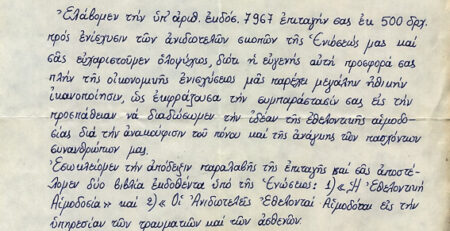 Ἐλάβομεν τήν ὑπ' ἀριθ. ἐμδόσ. 7967 ἐπιταγήν σας ἐκ 500 δρχ.
πρός ἐνίσχυσιν τῶν ἀνιδιοτελῶν σκοπῶν τῆς Ἑνώσεώς μας καί
σᾶς εὐχαριστοῦμεν ὁλοψύχως, διότι ἡ εὐγενής αὐτή προσφορά σας
πλήν τῆς οἰκονομικῆς ἐνισχύσεως μᾶς παρέχει μεγάλην ἠθικήν
ἱκανοποίησιν, ὡς ἐκφράζουσα τήν συμπαράστασίν σας εἰς τήν
προσπάθειαν νά διαδώσωμεν τήν ἰδέαν τῆς ἐθελοντικῆς αἱμοδο-
σίας διά τήν ἀνακούφισιν τοῦ πόνου καί τῆς ἀνάγκης τῶν πασχόντων
συνανθρώπων μας.
Ἐσωκλείομεν τήν ἀπόδειξιν παραλαβῆς τῆς ἐπιταγῆς καί σᾶς ἀποστέλ-
λομεν δύο βιβλία ἐκδοθέντα ὑπό τῆς Ἑνώσεως: 1) «Ἡ Ἐθελοντική
Αἱμοδοσία» καί 2) «Οἱ Ἀνιδιοτελεῖς Ἐθελονταί Αἱμοδόται εἰς τήν
ὑπηρεσίαν τῶν τραυματιῶν καί τῶν ἀσθενῶν.